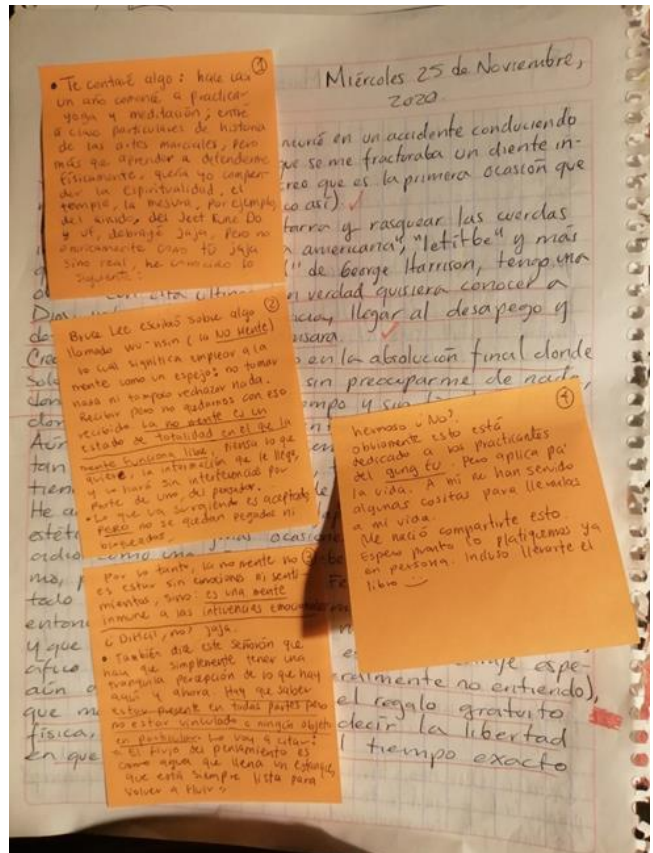 Miércoles 25 de Noviembre,
2020
①
• Te contaré algo: hace casi
un año comencé a practicar
yoga y meditación, entré
a clases particulares de historia
de las artes marciales, pero
más que aprender a defenderme
físicamente, quería yo
la espiritualidad, el
temple, la mesura, por ejemplo,
del aikido, del Jeet Kune Do
y uf, jaja, pero no
como tú jaja
sino real, he conocido lo
siguiente:
②
Bruce Lee escribió sobre algo
llamado wu-hsin (la No Mente)
lo cual significa emplear a la
mente como un espejo: no tomar
nada ni tampoco rechazar nada.
Recibir pero no quedarnos con eso
recibido. La no mente es un
estado de totalidad en el que la
mente funciona libre, piensa lo que
quiere, la información que le llega,
y lo hará sin interferencias por
parte de uno, del pensador.
• Lo que va surgiendo es aceptado,
PERO no se quedan pegados ni
bloqueados.
③
Por lo tanto, la no mente no
es estar sin emociones ni senti-
mientos, sino: es una mente
inmune a las influencias emocionales
¿Difícil, no? jaja.
• También dice este señorón que
hay que simplemente tener una
tranquila percepción de lo que hay
aquí y ahora. Hay que saber
estar presente en todas partes pero
no estar vinculado a ningún objeto
en particular. Lo voy a citar:
"El flujo del pensamiento es
como agua que llena un estanque,
que está siempre lista para
volver a fluir"
④
hermoso ¿No?
obviamente esto está
dedicado a los practicantes
del gung fu. Pero aplica pa'
la vida. A mí me han servido
algunas cositas para llevarlas
a mi vida.
Me nació compartirte esto.
Espero pronto lo platiquemos ya
en persona. Incluso llevarte el
libro
en un accidente conduciendo
que se me fracturaba un diente in-
creo que es la primera ocasión que
co así)
y rasguear las cuerdas
americana", "let it be" y más
de George Harrison, tengo una
verdad quisiera conocer a
llegar al desapego y
en la absolución final donde
sin preocuparme de nada,
espe-
realmente no entiendo),
el regalo gratuito
física, decir la libertad
en que el tiempo exacto